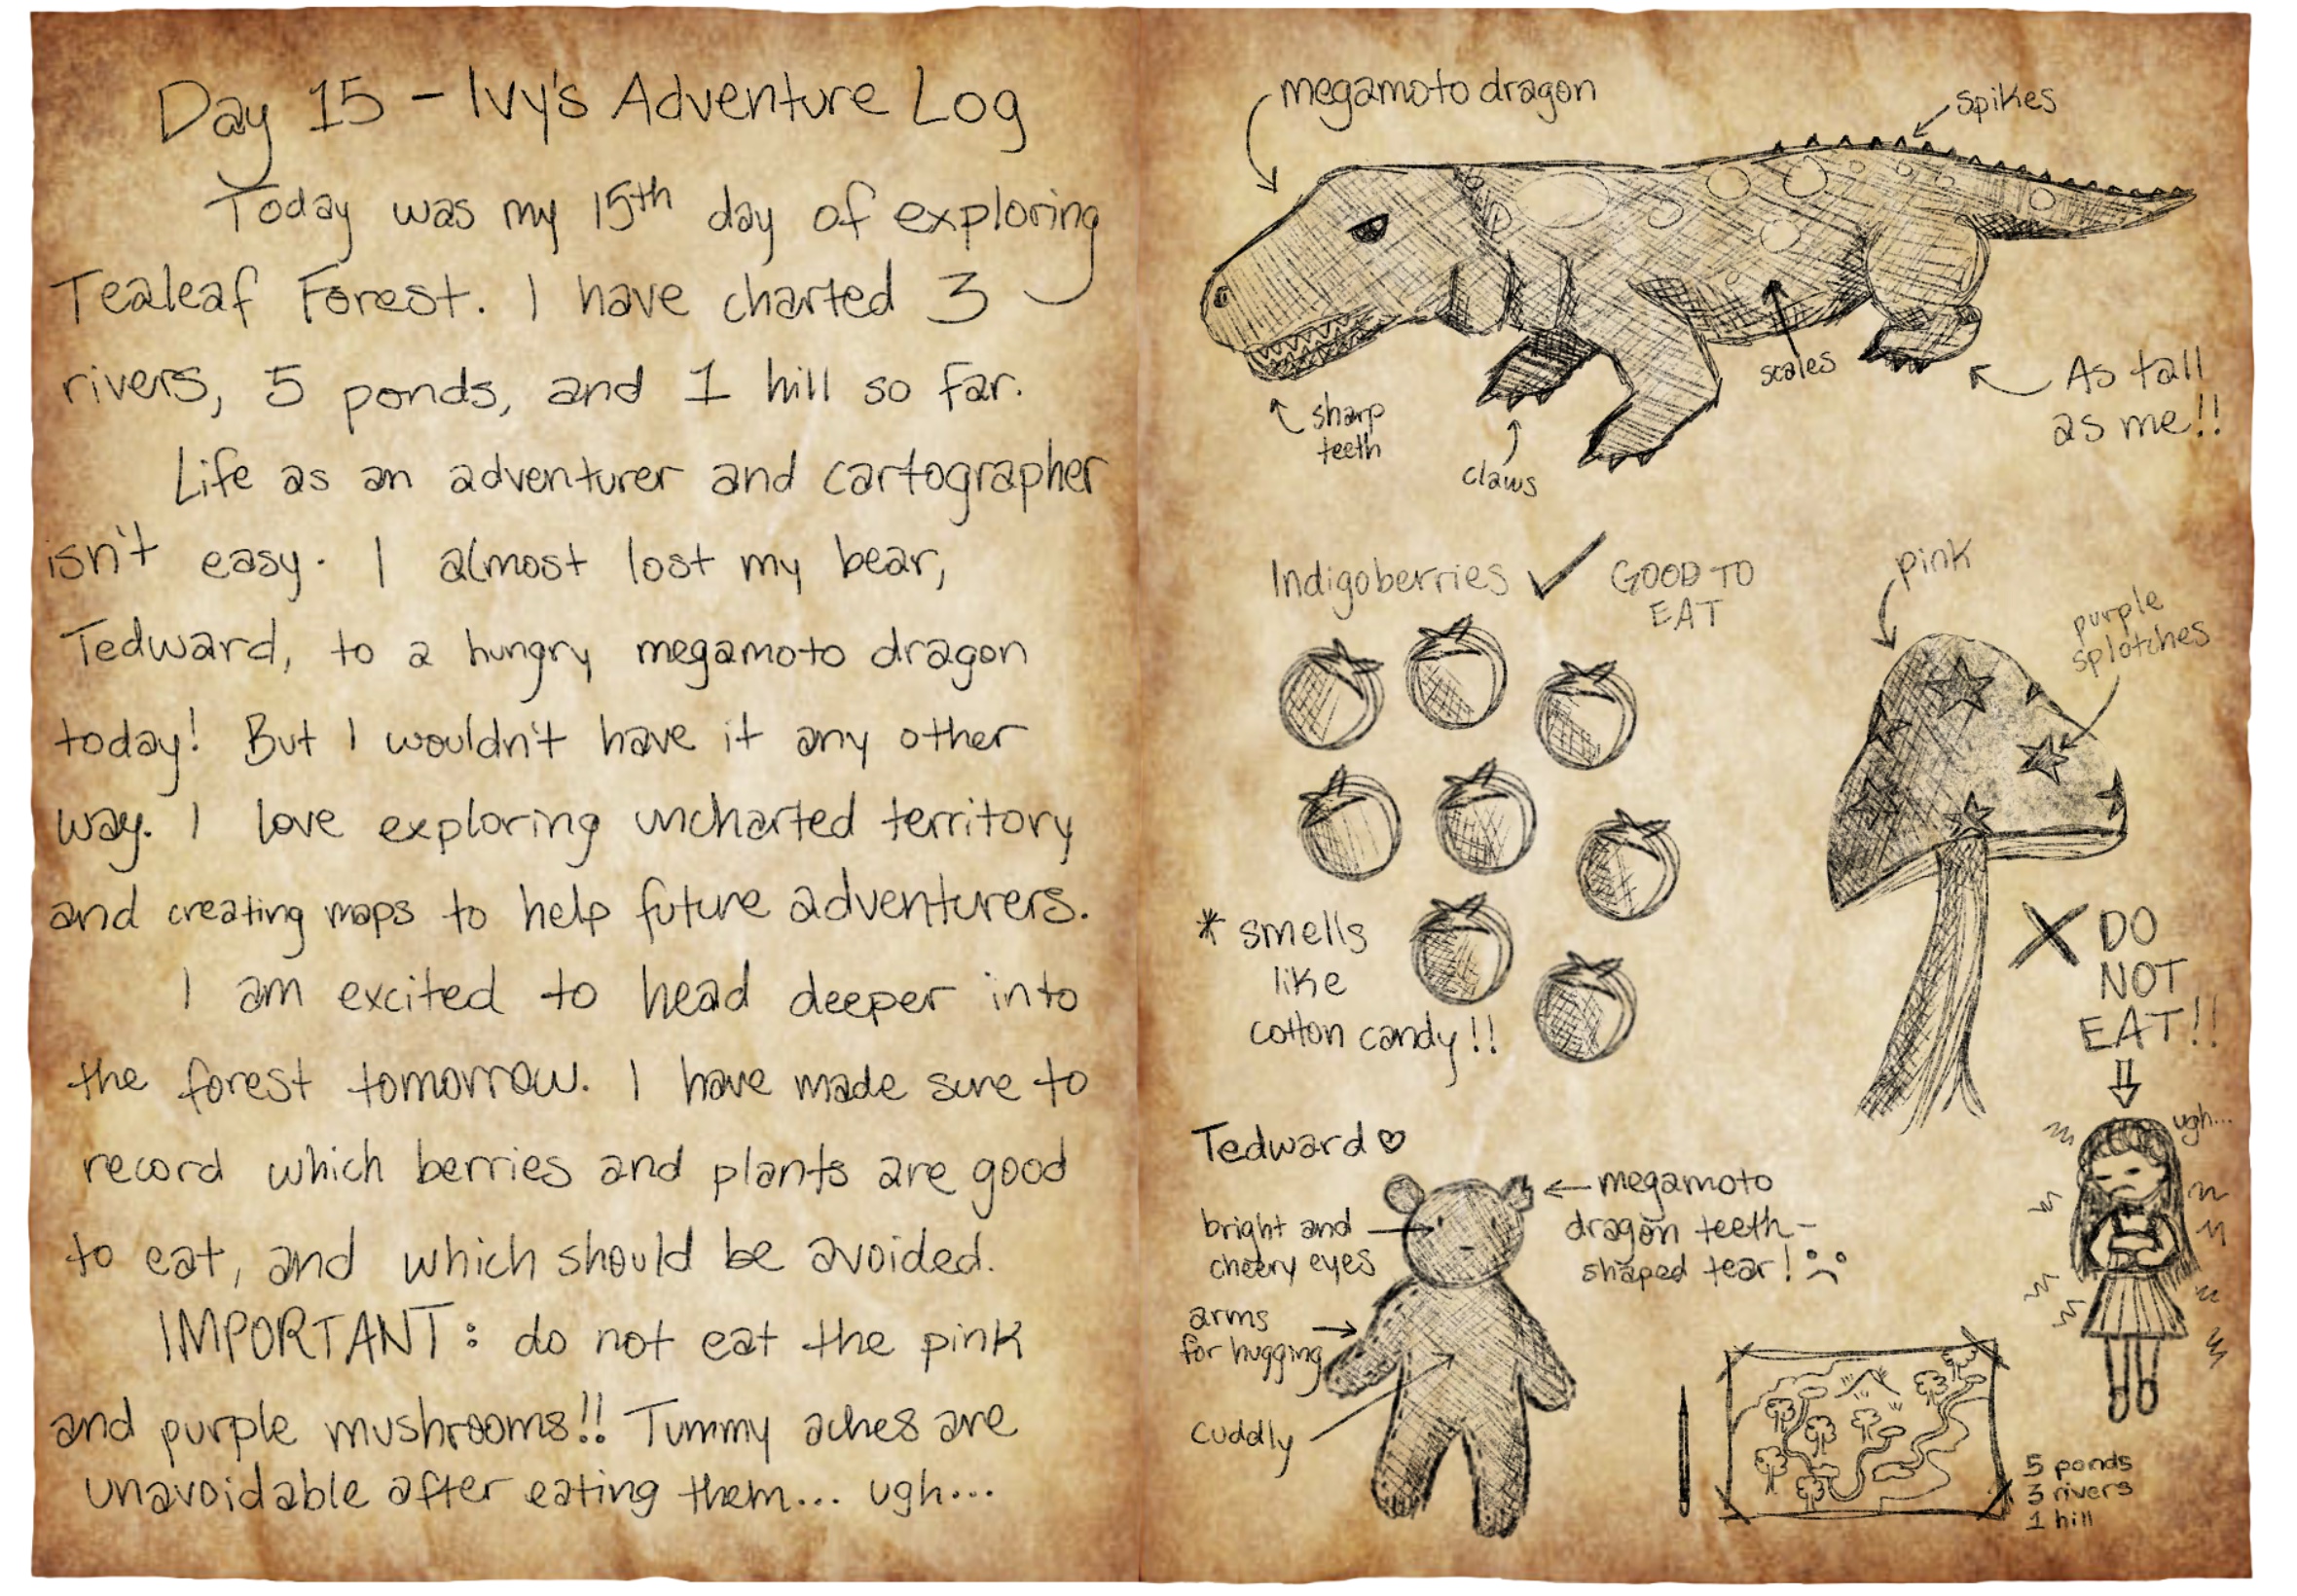 Day 15 - Ivy's Adventure Log
Today was my 15th day of exploring
Tealeaf Forest. I have charted 3
rivers, 5 ponds, and 1 hill so far.
Life as an adventurer and cartographer
isn't easy. I almost lost my bear,
Tedward, to a hungry megamoto dragon
today! But I wouldn't have it any other
way. I love exploring uncharted territory
and creating maps to help future adventurers.
I am excited to head deeper into
the forest tomorrow. I have made sure to
record which berries and plants are good
to eat, and which should be avoided.
IMPORTANT: do not eat the pink
and purple mushrooms!! Tummy aches are
unavoidable after eating them... ugh...
megamoto dragon
spikes
scales
As tall
as me!!
sharp
teeth
claws
Indigoberries ✓ GOOD TO
EAT
* smells
like
cotton candy!!
pink
purple
splotches
X DO
NOT
EAT!!
ugh...
Tedward ♡
bright and
cheery eyes
megamoto
dragon teeth-
shaped tear! :(
arms
for hugging
cuddly
5 ponds
3 rivers
1 hill